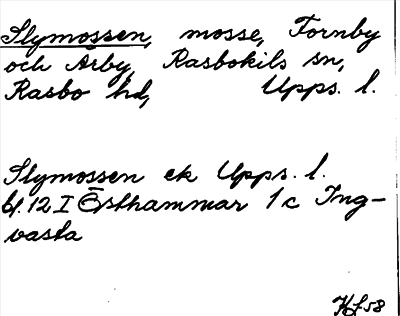 Slymossen, mosse, Tornby
och Årby, Rasbokils sn,
Rasbo hd, Upps. l.
Slymossen ek Upps. l.
bl. 12 I Östhammar 1c Ing-
vasta